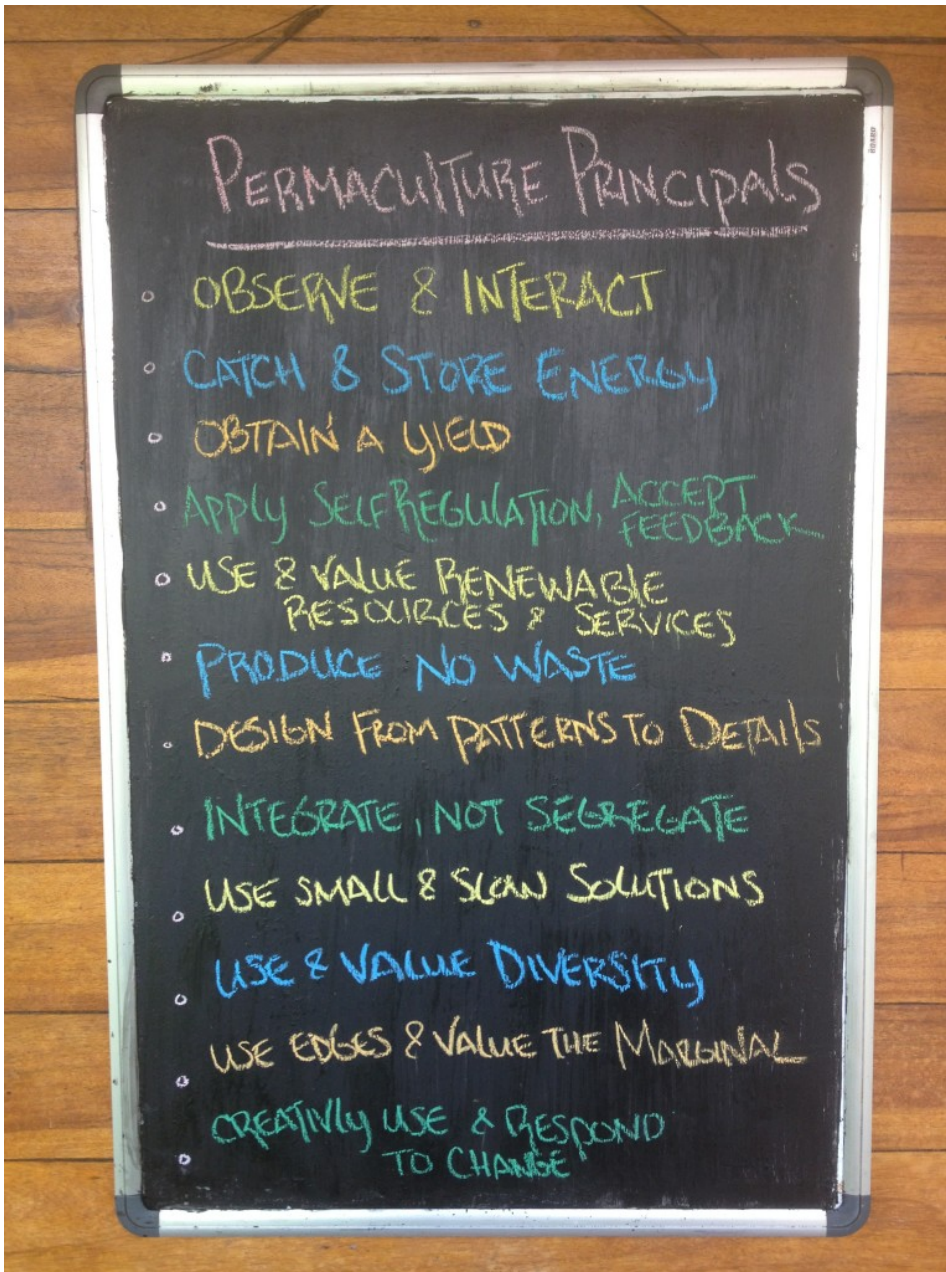 PERMACULTURE PRINCIPALS
OBSERVE & INTERACT
CATCH & STORE ENERGY
OBTAIN A YIELD
APPLY SELF REGULATION, ACCEPT
FEEDBACK
USE & VALUE RENEWABLE
RESOURCES & SERVICES
PRODUCE NO WASTE
DESIGN FROM PATTERNS TO DETAILS
INTEGRATE, NOT SEGREGATE
USE SMALL & SLOW SOLUTIONS
USE & VALUE DIVERSITY
USE EDGES & VALUE THE MARGINAL
CREATIVLY USE & RESPOND
TO CHANGE